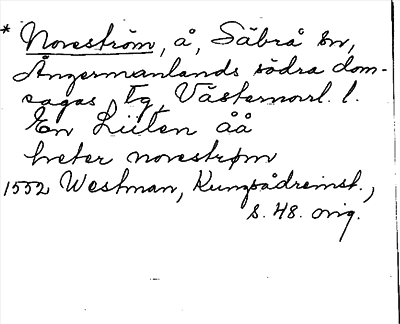 * Noreström, å, Säbrå sn,
Ångermanlands södra dom-
sagas tg, Västernorrl. l.
En Liiten åå
heter norestrøm
1552 Westman, Kungsådreinst.,
s. 48. orig.